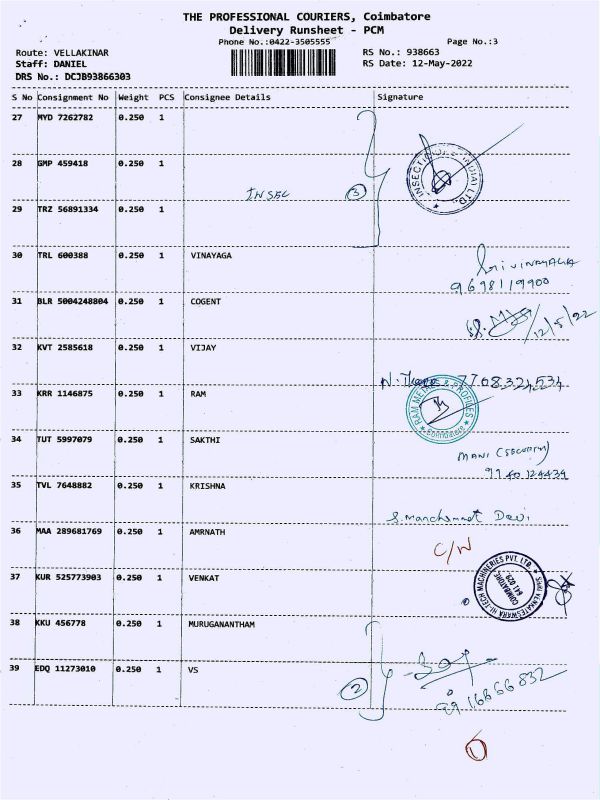 THE PROFESSIONAL COURIERS, Coimbatore
Delivery Runsheet - PCM
Phone No.:0422-3505555 Page No.:3
Route: VELLAKINAR RS No.: 938663
Staff: DANIEL RS Date: 12-May-2022
DRS No.: DCJB93866303
S No Consignment No Weight PCS Consignee Details Signature
27 MYD 7262782 0.250 1
28 GMP 459418 0.250 1
INSEC 3
29 TRZ 56891334 0.250 1
30 TRL 600388 0.250 1 VINAYAGA
Sri VINAYAGA
9698119900
31 BLR 5004248804 0.250 1 COGENT
12/5/22
32 KVT 2585618 0.250 1 VIJAY
7708324534
33 KRR 1146875 0.250 1 RAM
RAM METALS & PROFILES
34 TUT 5997079 0.250 1 SAKTHI
MANI (SECURITY)
9940124434
35 TVL 7648882 0.250 1 KRISHNA
Devi
36 MAA 289681769 0.250 1 AMRNATH
C/W
37 KUR 525773903 0.250 1 VENKAT
SHRI VENKATESWARA HI-TECH MACHINERIES PVT. LTD.
COIMBATORE
641 029.
38 KKU 456778 0.250 1 MURUGANANTHAM
39 EDQ 11273010 0.250 1 VS
2
1